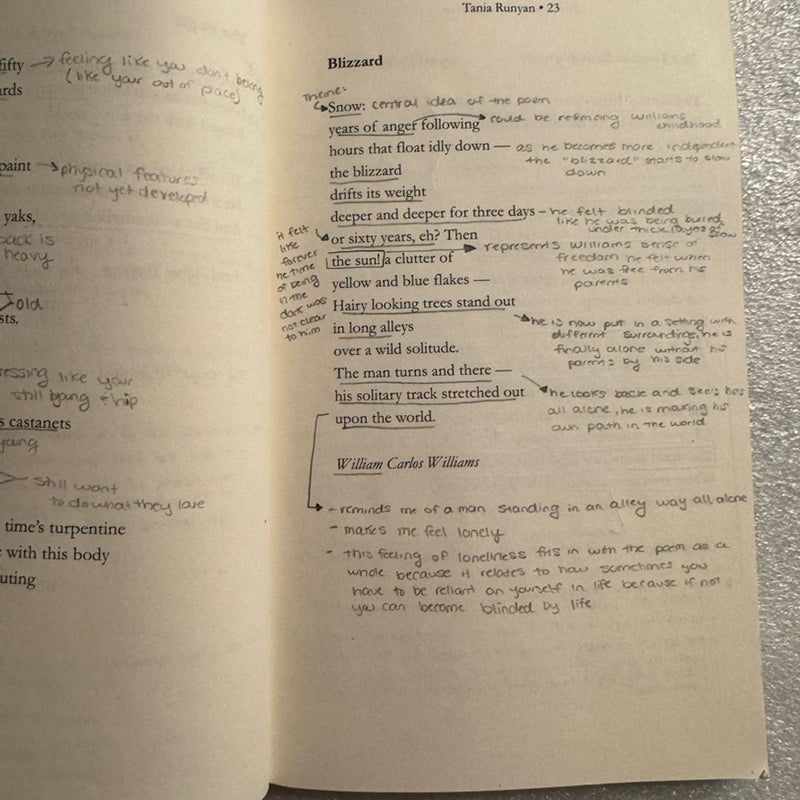 Tania Runyan • 23
fifty → feeling like you don't belong
(like your out of place)
ards
paint → physical features
not yet developed
yaks,
back is
heavy
old
sts.
ressing like your
still being + hip
s castanets
young
still want
to do what they love
time's turpentine
with this body
uting
Blizzard
theme:
Snow: central idea of the poem
years of anger following could be refrencing Williams
childhood
hours that float idly down — as he becomes more independent
the "blizzard" starts to slow
down
the blizzard
drifts its weight
deeper and deeper for three days – he felt blinded
like he was being buried
under thick layers of
snow
it felt
like
forever
he time
of being
in the
dark was
not clear
to him
or sixty years, eh? Then
represents Williams sense of
freedom he felt when
he was free from his
parents
the sun! a clutter of
yellow and blue flakes —
Hairy looking trees stand out
he is now put in a setting with
different surroundings, he is
finally alone without his
parents by his side
in long alleys
over a wild solitude.
The man turns and there —
his solitary track stretched out
he looks back and sees hes
all alone, he is making his
own path in the world
upon the world.
William Carlos Williams
- reminds me of a man standing in an alley way all alone
- makes me feel lonely
- this feeling of loneliness fits in with the poem as a
whole because it relates to how sometimes you
have to be reliant on yourself in life because if not
you can become blinded by life